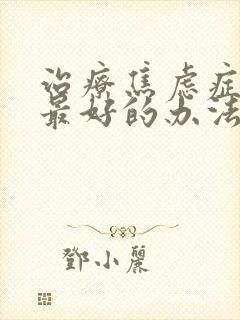 治療焦虑症
最好的办法
鄧小麗